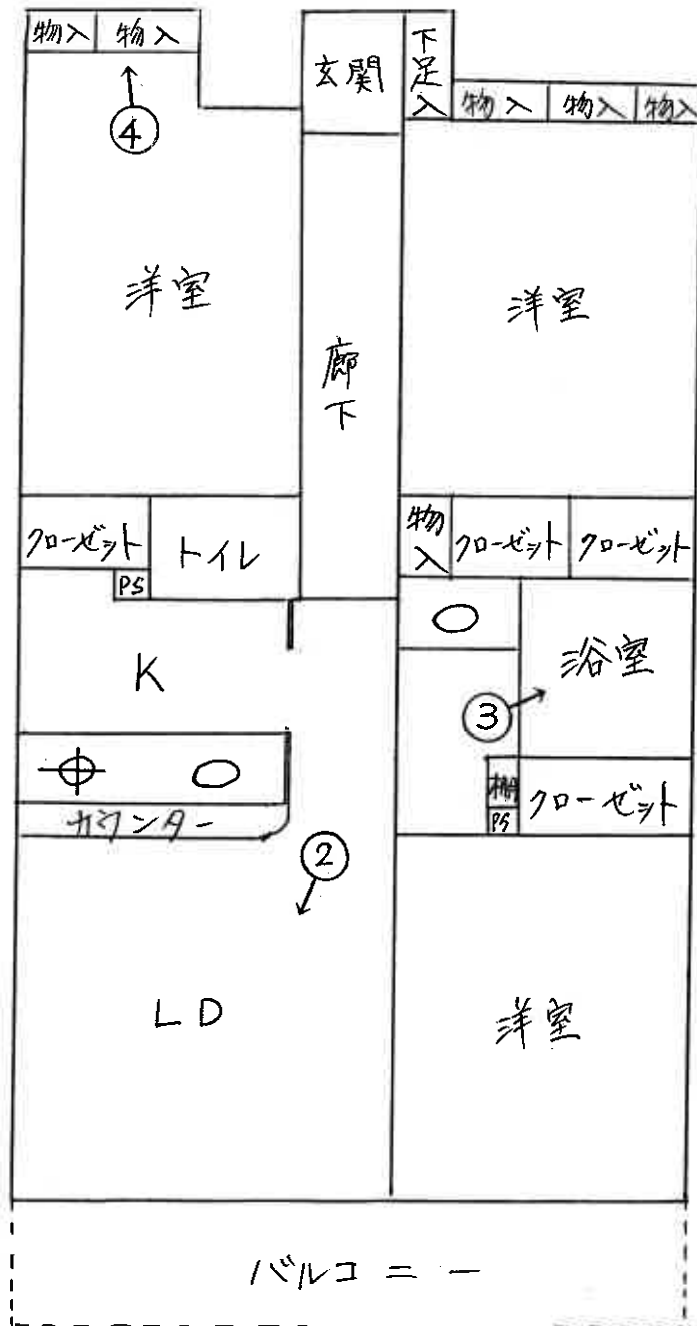 物入 物入
玄関
下足入
物入 物入 物入
④
洋室
洋室
廊下
クローゼット
トイレ
物入
クローゼット
クローゼット
PS
K
浴室
③
棚
PS
クローゼット
カウンター
②
LD
洋室
バルコニー